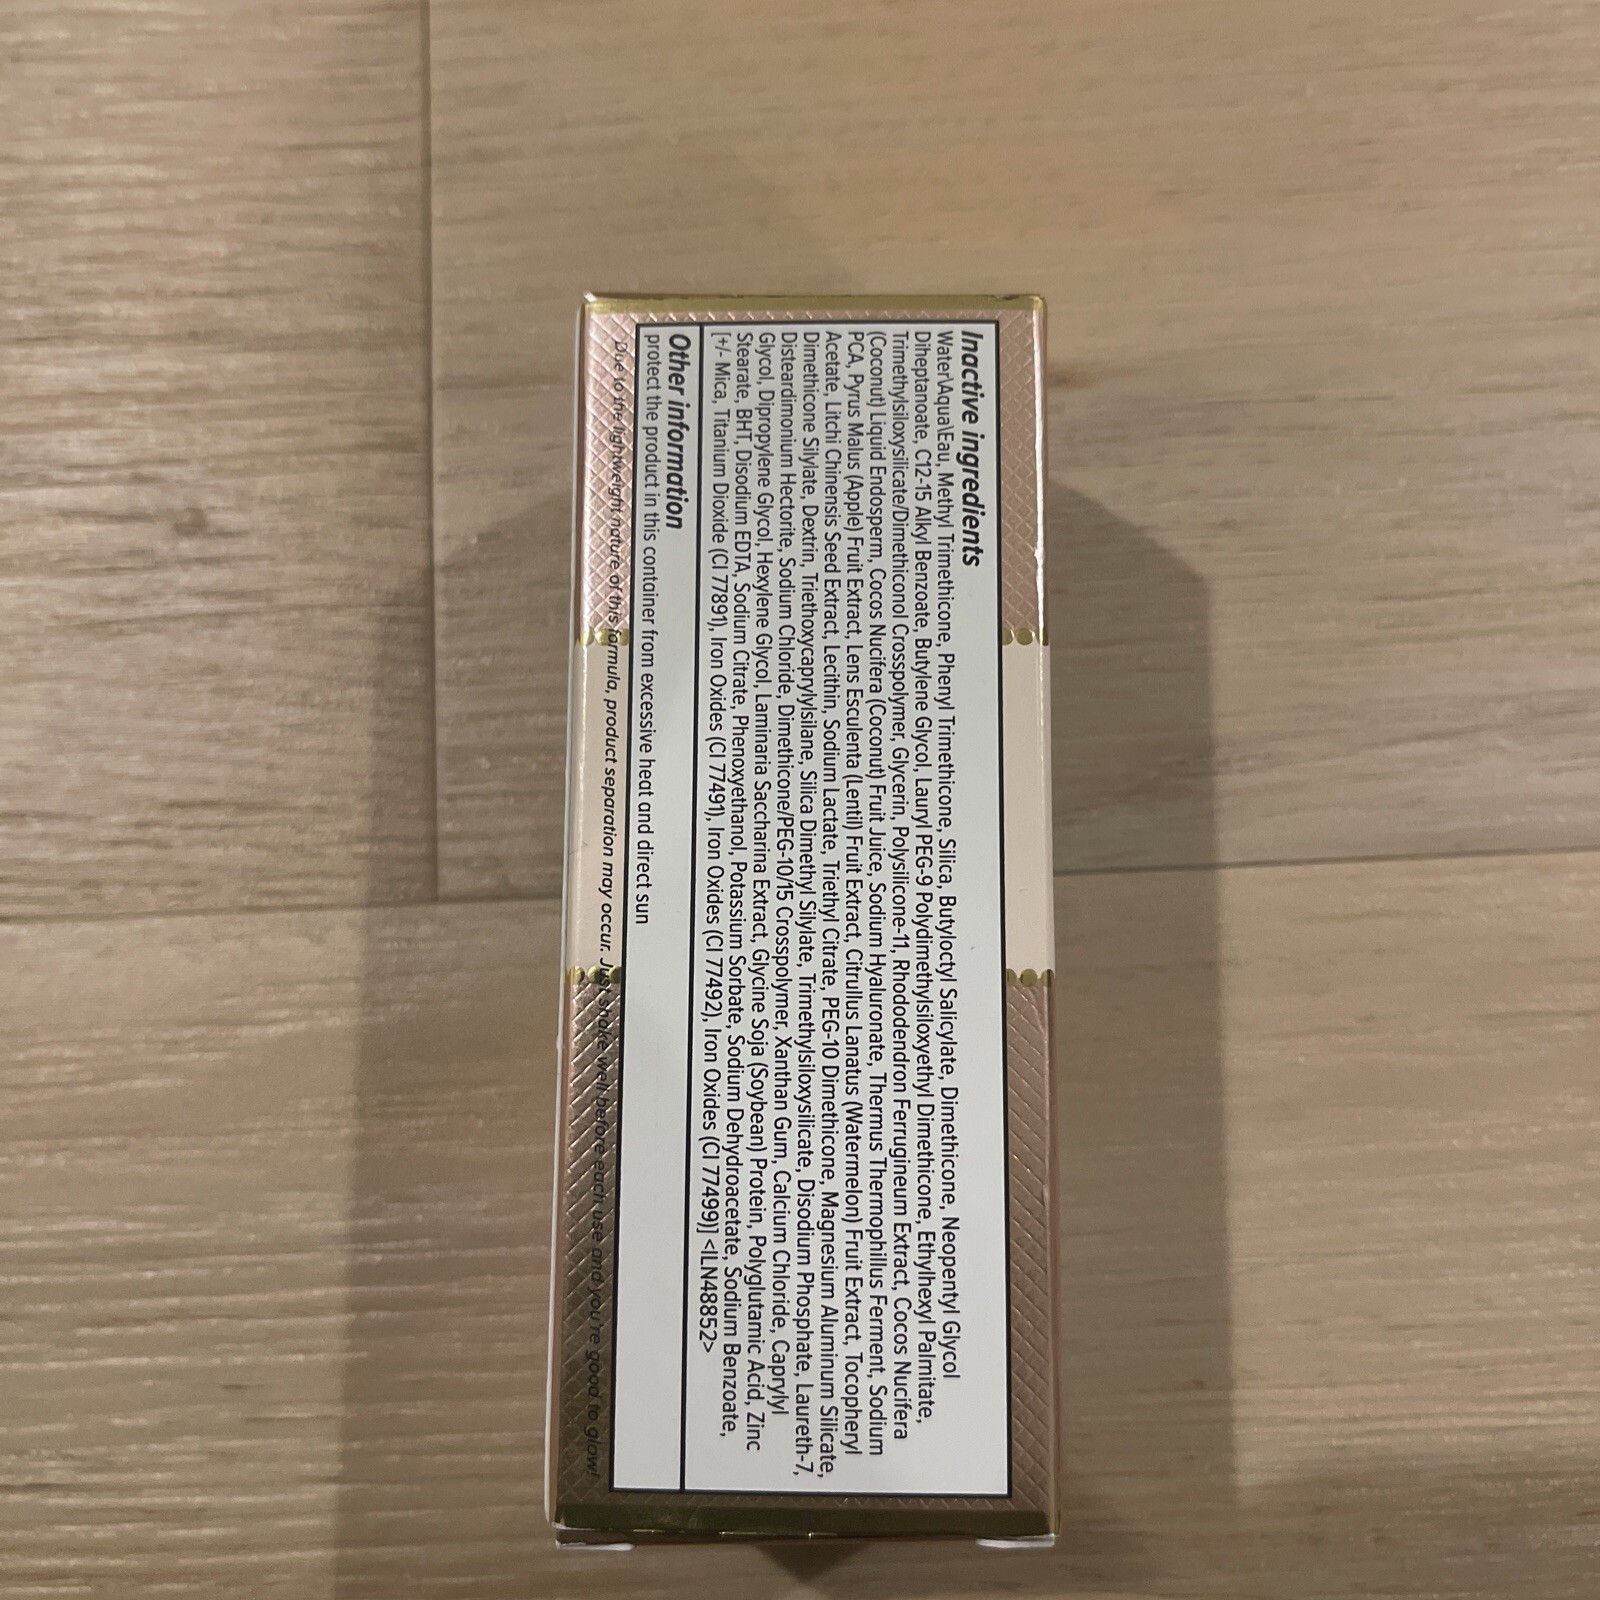 Inactive ingredients
Water\Aqua\Eau, Methyl Trimethicone, Phenyl Trimethicone, Silica, Butyloctyl Salicylate, Dimethicone, Neopentyl Glycol
Diheptanoate, C12-15 Alkyl Benzoate, Butylene Glycol, Lauryl PEG-9 Polydimethylsiloxyethyl Dimethicone, Ethylhexyl Palmitate,
Trimethylsiloxysilicate/Dimethiconol Crosspolymer, Glycerin, Polysilicone-11, Rhododendron Ferrugineum Extract, Cocos Nucifera
(Coconut) Liquid Endosperm, Cocos Nucifera (Coconut) Fruit Juice, Sodium Hyaluronate, Thermus Thermophillus Ferment, Sodium
PCA, Pyrus Malus (Apple) Fruit Extract, Lens Esculenta (Lentil) Fruit Extract, Citrullus Lanatus (Watermelon) Fruit Extract, Tocopheryl
Acetate, Litchi Chinensis Seed Extract, Lecithin, Sodium Lactate, Triethyl Citrate, PEG-10 Dimethicone, Magnesium Aluminum Silicate,
Dimethicone Silylate, Dextrin, Triethoxycaprylylsilane, Silica Dimethyl Silylate, Trimethylsiloxysilicate, Disodium Phosphate, Laureth-7,
Disteardimonium Hectorite, Sodium Chloride, Dimethicone/PEG-10/15 Crosspolymer, Xanthan Gum, Calcium Chloride, Caprylyl
Glycol, Dipropylene Glycol, Hexylene Glycol, Laminaria Saccharina Extract, Glycine Soja (Soybean) Protein, Polyglutamic Acid, Zinc
Stearate, BHT, Disodium EDTA, Sodium Citrate, Phenoxyethanol, Potassium Sorbate, Sodium Dehydroacetate, Sodium Benzoate,
[+/- Mica, Titanium Dioxide (CI 77891), Iron Oxides (CI 77491), Iron Oxides (CI 77492), Iron Oxides (CI 77499)] <ILN48852>
Other information
protect the product in this container from excessive heat and direct sun
Due to the lightweight nature of this formula, product separation may occur. Just shake well before each use and you're good to glow!